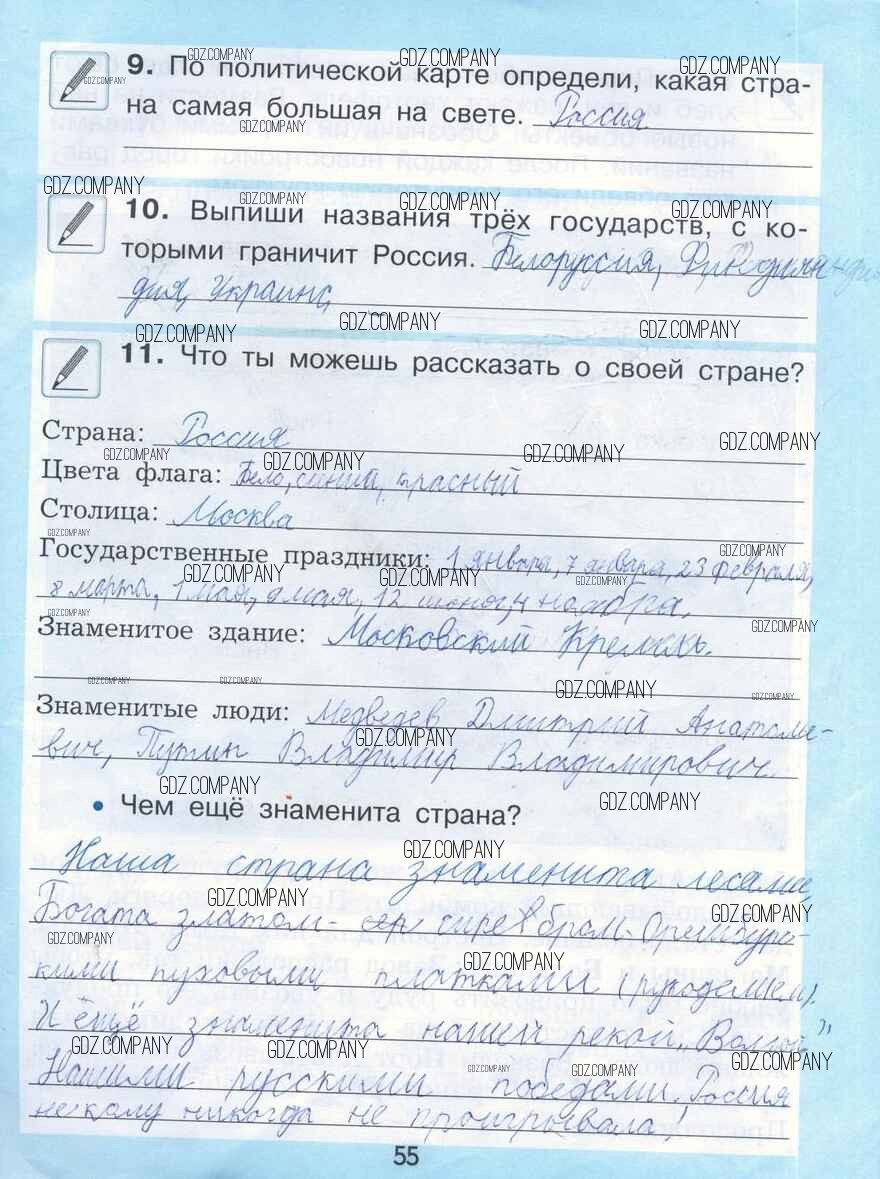 9. По политической карте определи, какая стра-
на самая большая на свете. Россия
10. Выпиши названия трёх государств, с ко-
торыми граничит Россия. Белоруссия,
дия, Украина,
11. Что ты можешь рассказать о своей стране?
Страна: Россия
Цвета флага: Бело, синий, красный
Столица: Москва
Государственные праздники: 1 января, 7 января, 23 февраля,
8 марта, 1 Мая, 9 мая, 12 июня, 4 ноября.
Знаменитое здание: Московский Кремль.
Знаменитые люди: Медведев Дмитрий Анатоле-
вич, Путин Владимир Владимирович.
• Чем ещё знаменита страна?
Наша страна знаменита лесами,
Богата златом - сере бром. Оренбург-
кими пуховыми платками (рукоделием).
И ещё знаменита нашей рекой „Волгой"
Нашими русскими победами. Россия
некому никогда не проигрывала!
55
GDZ.COMPANY